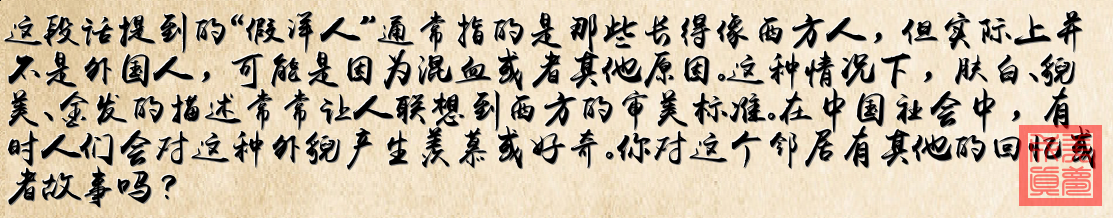 这段话提到的“假洋人”通常指的是那些长得像西方人，但实际上并
不是外国人，可能是因为混血或者其他原因。这种情况下，肤白、貌
美、金发的描述常常让人联想到西方的审美标准。在中国社会中，有
时人们会对这种外貌产生羡慕或好奇。你对这个邻居有其他的回忆或
者故事吗？